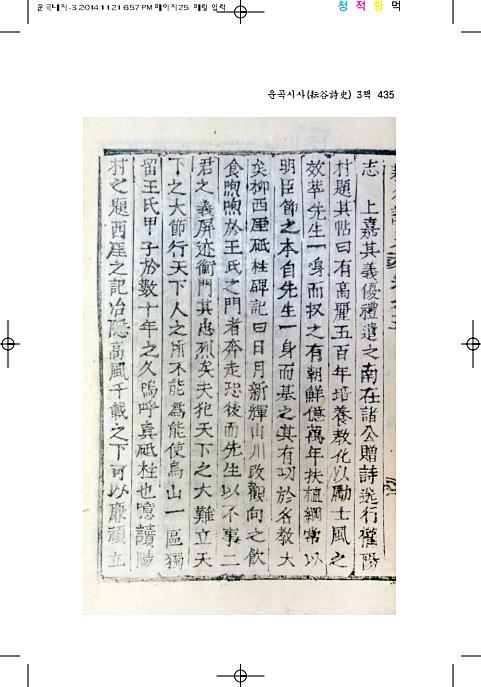 운곡대지-3 2014.11.21 6:57 PM 페이지25 매킬 입력
청 적 황 먹
운곡시사(耘谷詩史) 3책 435
志 上嘉其義優禮遣之南在諸公贈詩送行權陽
村題其帖曰有高麗五百年培養敎化以勵士風之
效萃先生一身而收之有朝鮮億萬年扶植綱常以
明臣節之本自先生一身而基之其有功於名敎大
矣柳西厓砥柱碑記曰日月新輝山川改觀向之飮
食喣喣於王氏之門者奔走恐後而先生以不事二
君之義屏迹衡門其忠烈矣夫犯天下之大難立天
下之大節行天下人之所不能爲能使烏山一區獨
留王氏甲子於數十年之久嗚呼眞砥柱也噫讀陽
村之題西厓之記冶隱高風千載之下可以廉頑立